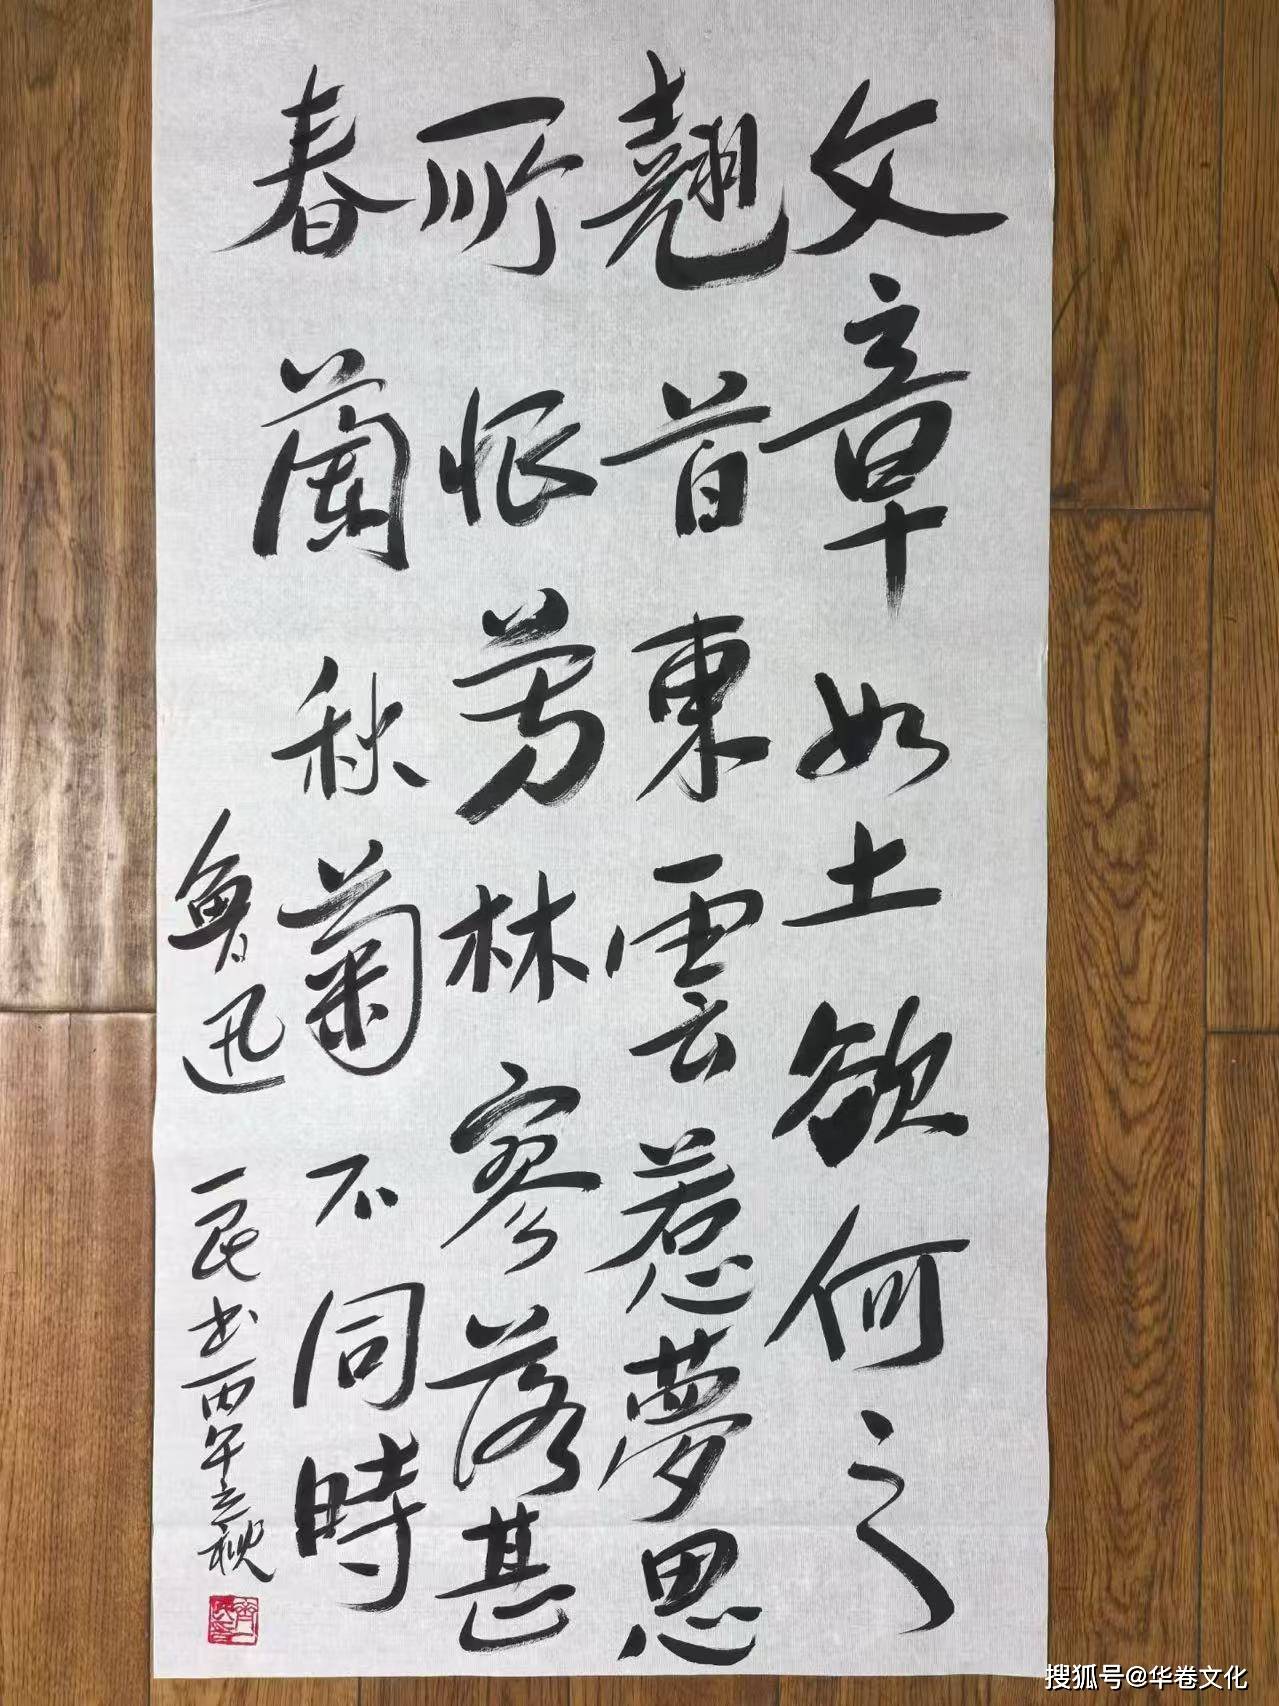 文章如土欲何之
翹首東雲惹夢思
所恨芳林寥落甚
春蘭秋菊不同時
魯迅 一民书丙午立秋
搜狐号@华卷文化